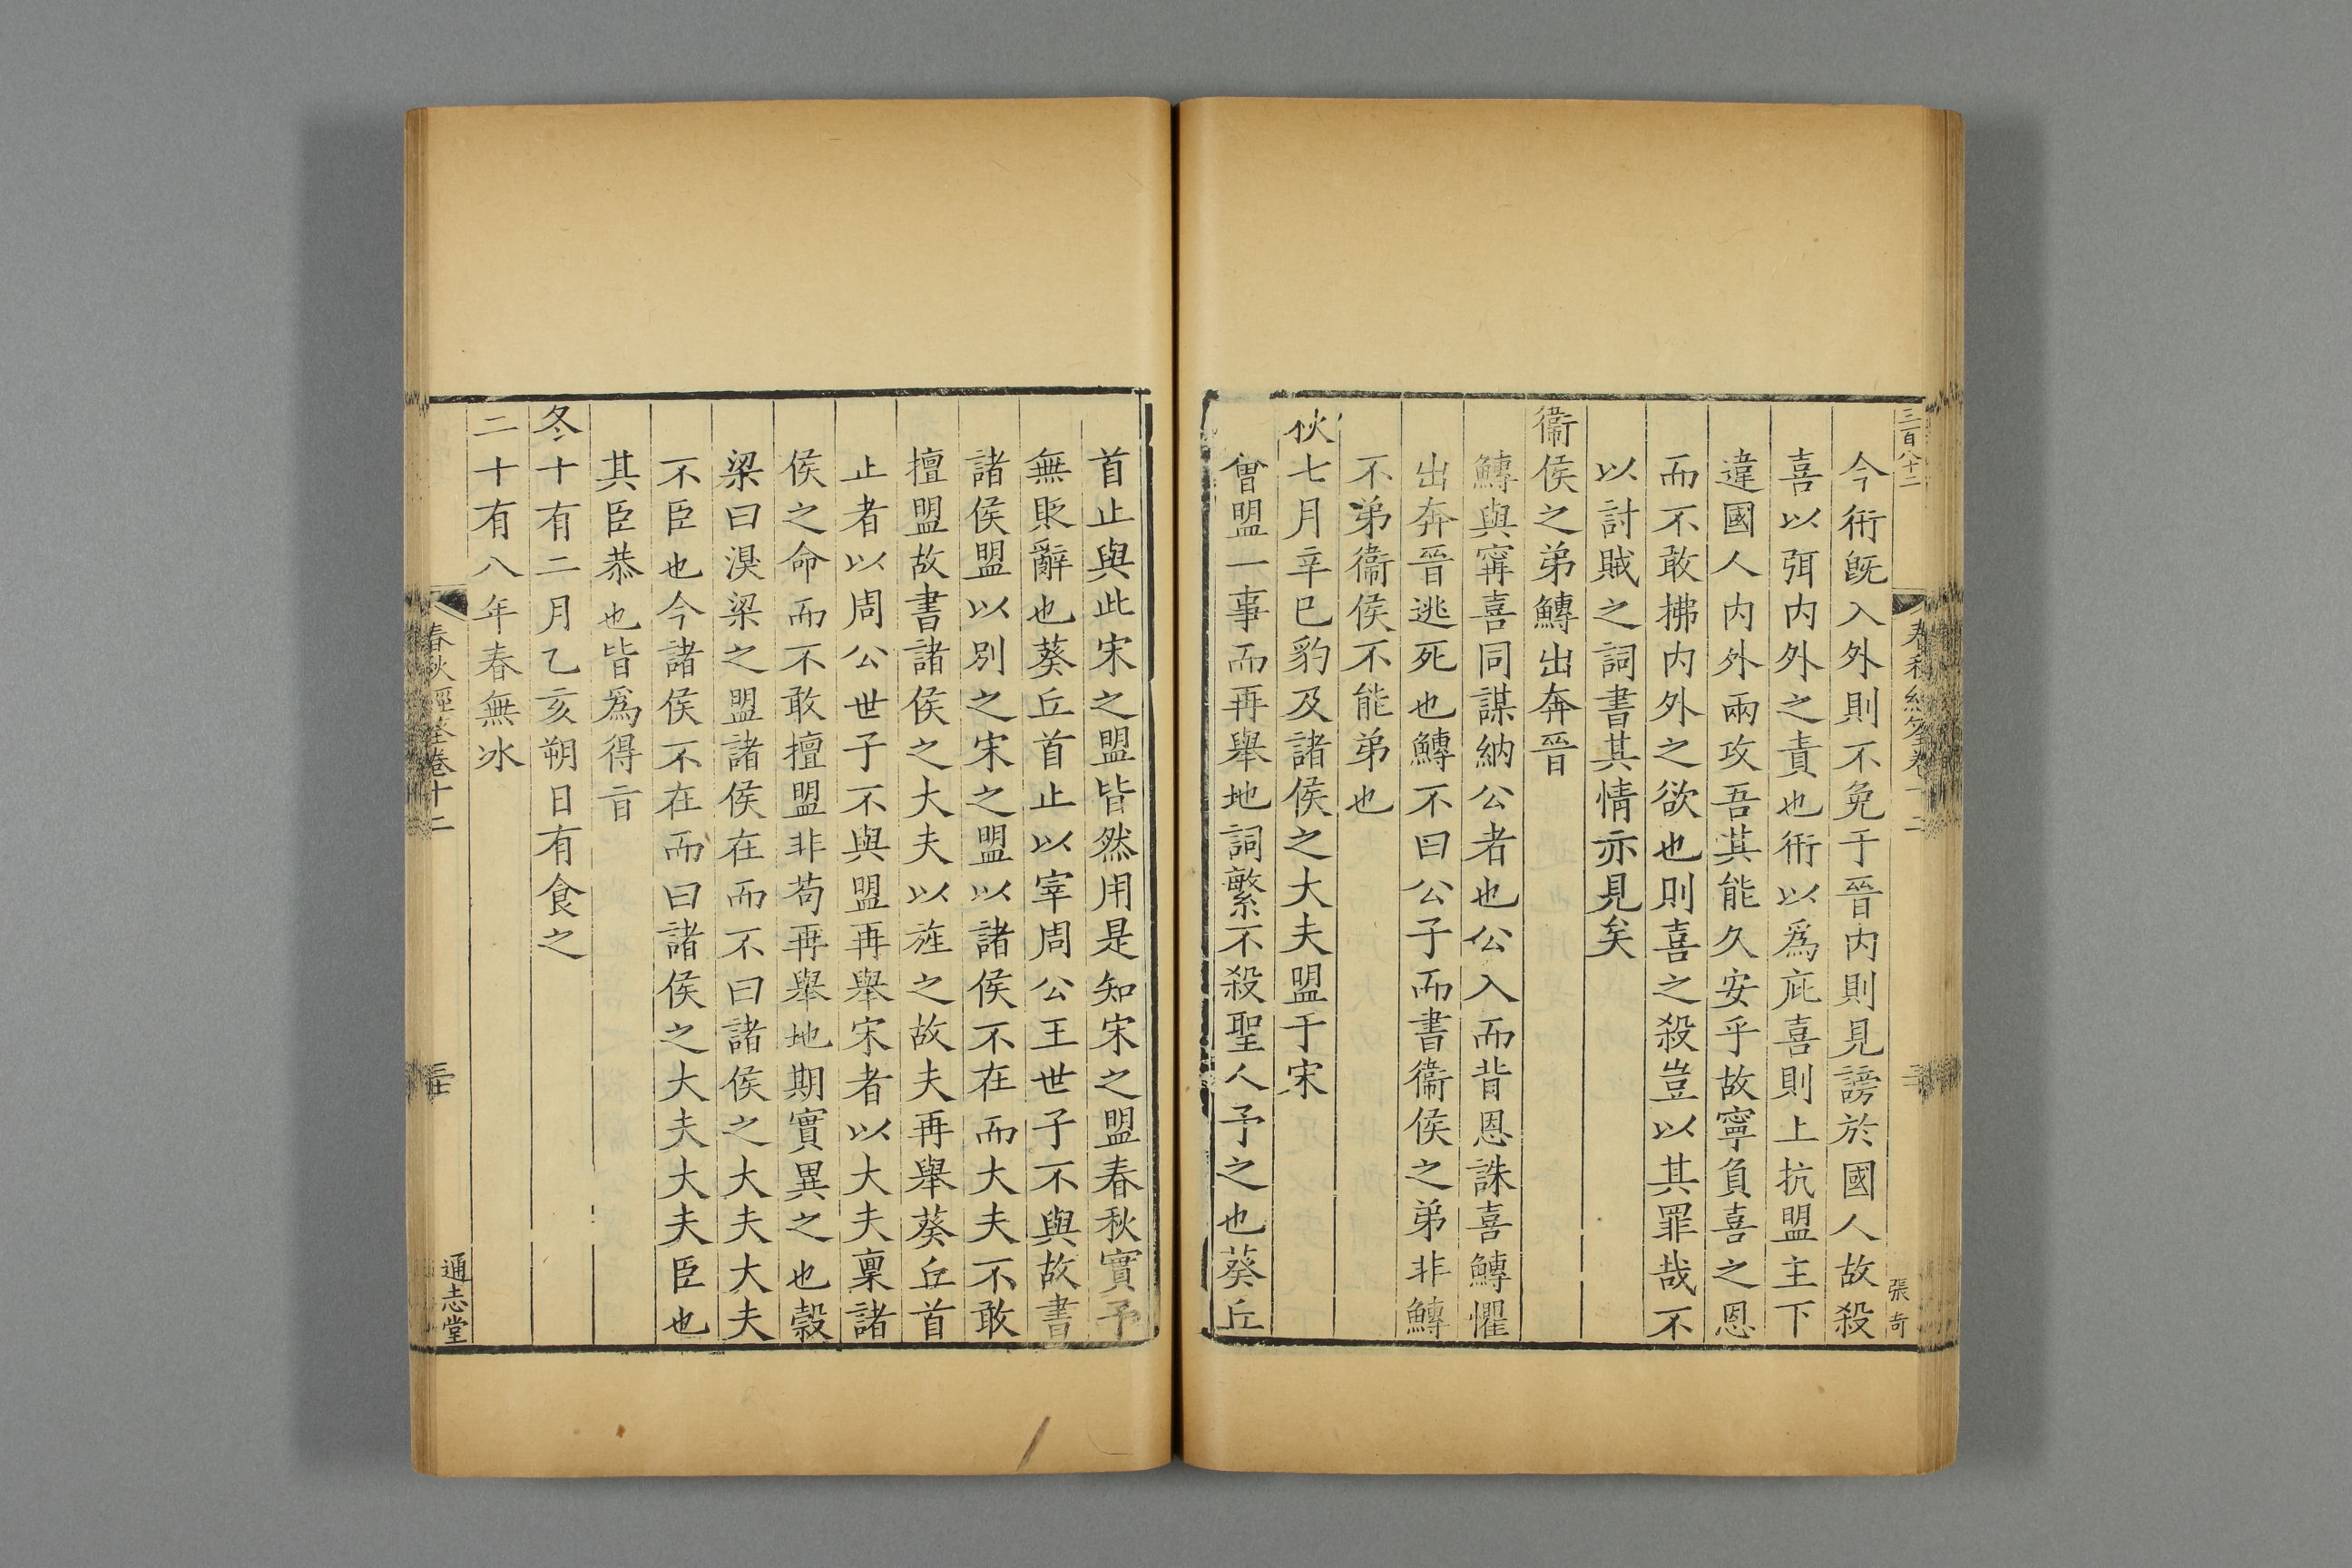 三百八十二
張奇
今衎旣入外則不免于晉内則見謗於國人故殺
喜以弭内外之責也衎以爲庇喜則上抗盟主下
違國人内外兩攻吾其能久安乎故寧負喜之恩
而不敢拂内外之欲也則喜之殺豈以其罪哉不
以討賊之詞書其情亦見矣
衞侯之弟鱄出奔晉
鱄與甯喜同謀納公者也公入而背恩誅喜鱄懼
出奔晉逃死也鱄不曰公子而書衞侯之弟非鱄
不弟衞侯不能弟也
秋七月辛巳豹及諸侯之大夫盟于宋
會盟一事而再舉地詞繁不殺聖人予之也葵丘
首止與此宋之盟皆然用是知宋之盟春秋實予
無貶辭也葵丘首止以宰周公王世子不與故書
諸侯盟以别之宋之盟以諸侯不在而大夫不敢
擅盟故書諸侯之大夫以旌之故夫再舉葵丘首
止者以周公世子不與盟再舉宋者以大夫稟諸
侯之命而不敢擅盟非苟再舉地期實異之也榖
梁曰湨梁之盟諸侯在而不曰諸侯之大夫大夫
不臣也今諸侯不在而曰諸侯之大夫大夫臣也
其臣恭也皆爲得㫖
冬十有二月乙亥朔日有食之
二十有八年春無冰
春秋經筌卷十二
通志堂